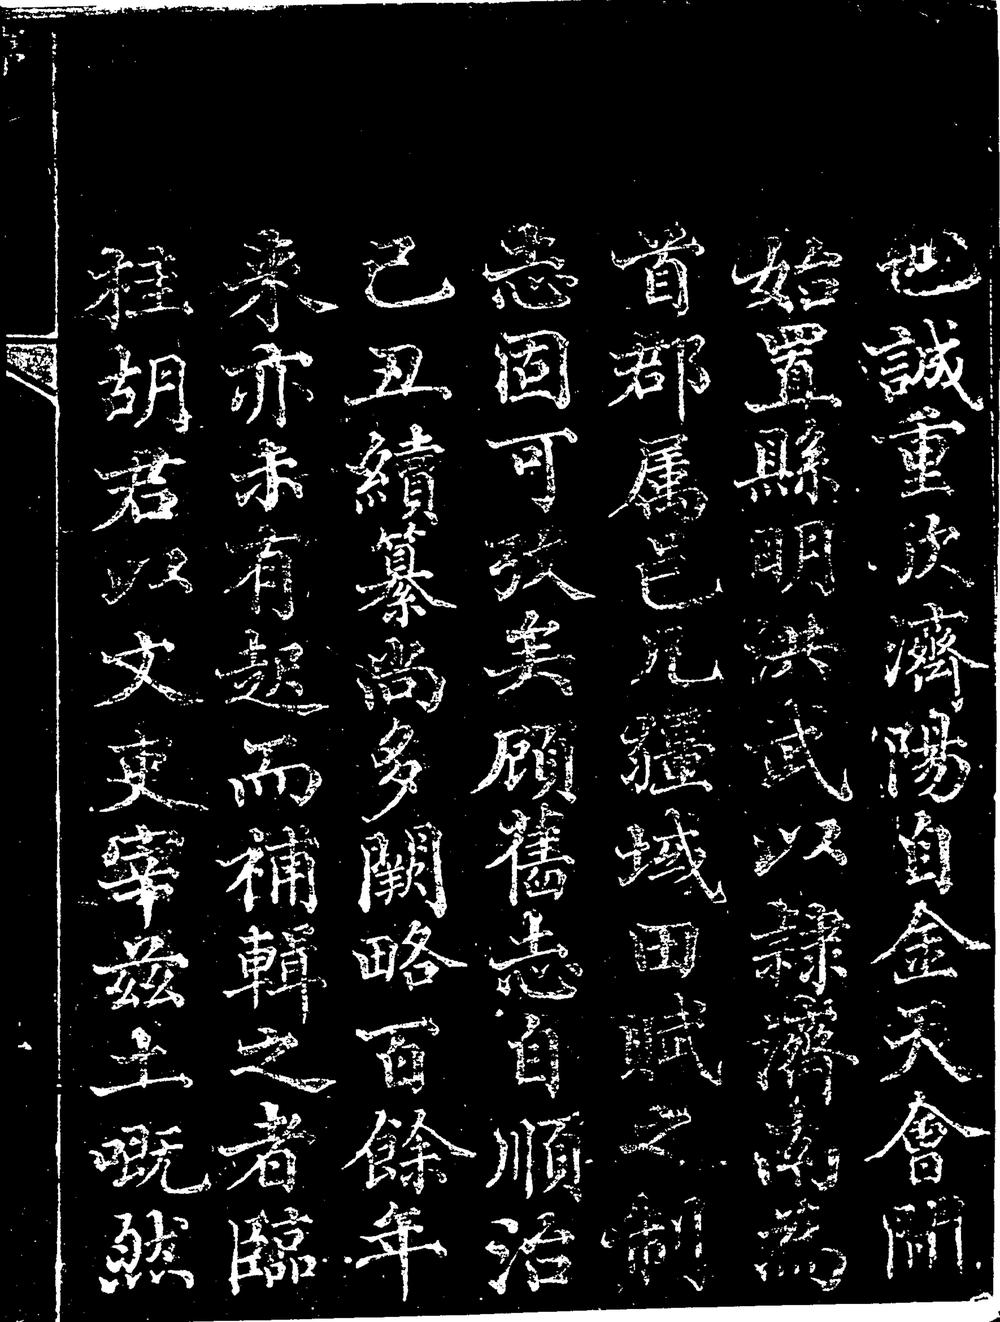 也誠重次濟陽自金天會間
始置縣明洪武以隷濟南為
首郡属邑凡疆域田賦之制
志固可攷美顧舊志自順治
己丑續纂尚多闕略百餘年
来亦未有起而補輯之者臨
桂胡君以文吏宰兹土嘅然